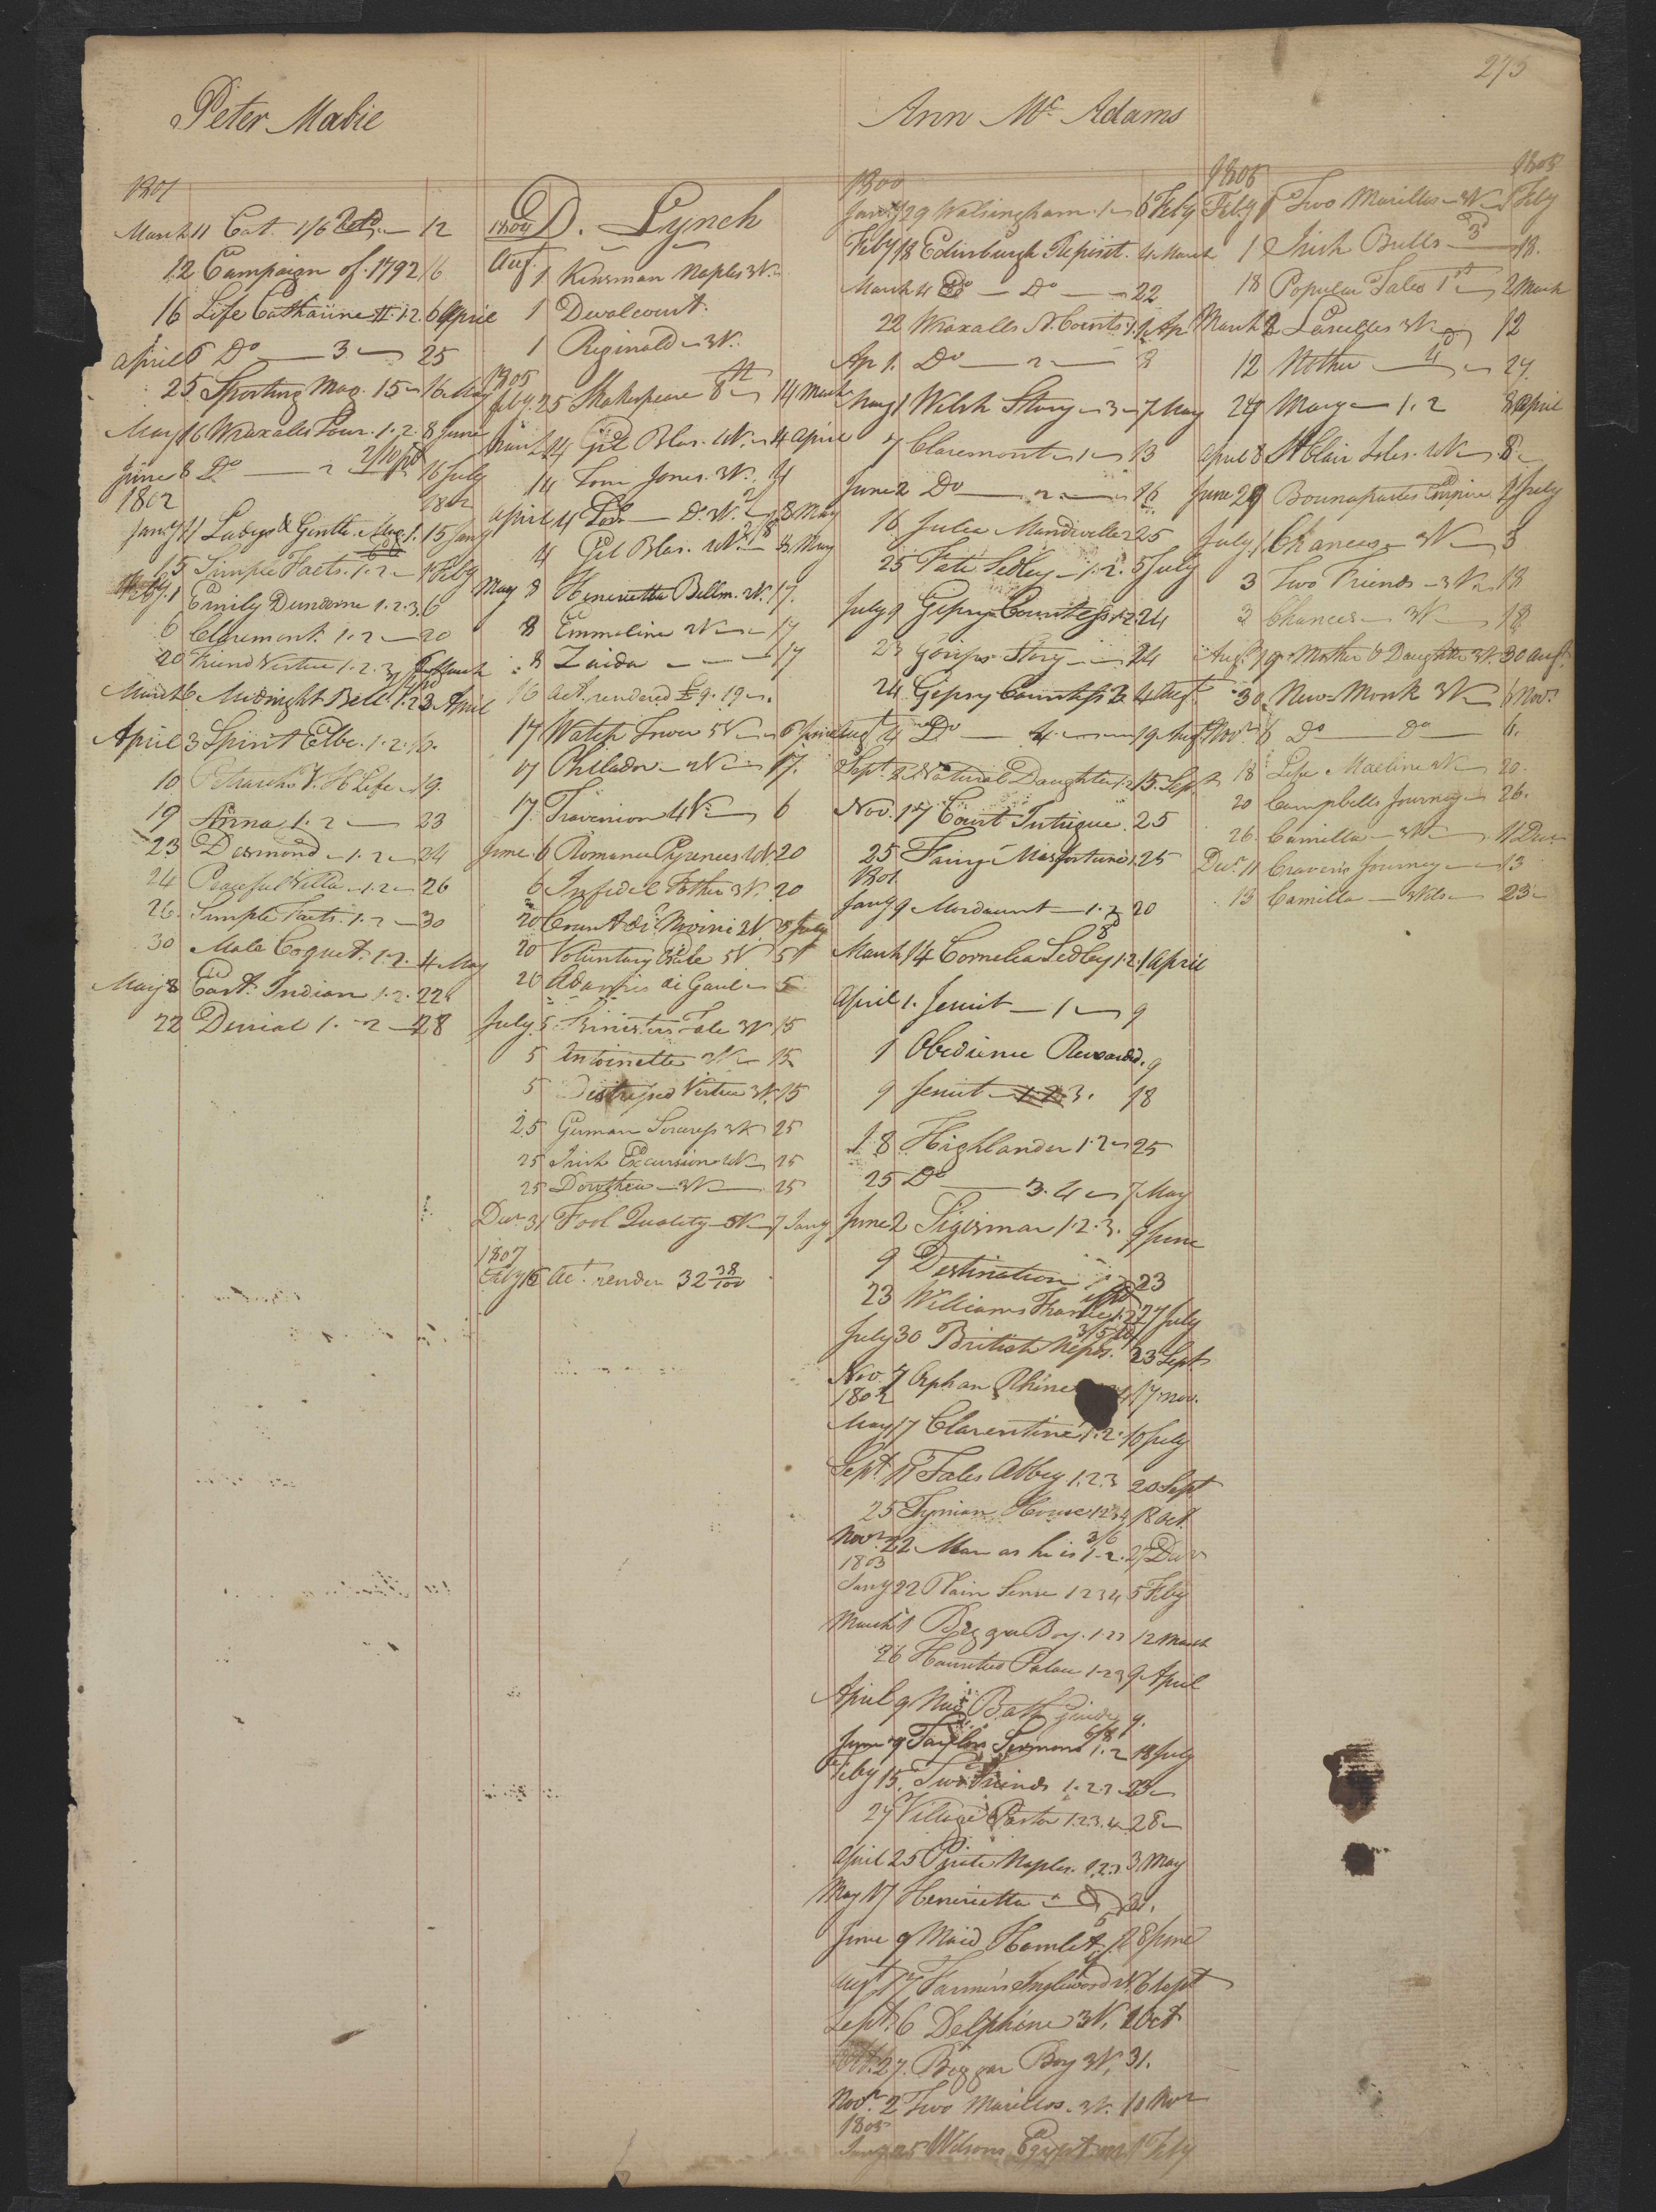 275
Peter Mabie
1801
March 11 Cat. 1/6 — 12
12 Campaign of 1792 16
16 Life Catharine II 1.2. 6 April
April 6 Do — 3 — 25
25 Sporting Mag. 15 — 16 May
May 16 Wraxalls Tour. 1.2. 8 June
June 8 Do — 2 16 July
1802 1802
Jany 11 Ladys & Gentle. Mag. 1. 15 Jany
15 Simple Facts. 1.2 — 1 Feby
Feby. 1 Emily Dundorne 1.2.3. 6
6 Claremont. 1.2 — 20
20 Friend Virtue 1.2.3 6 March
March 6 Midnight Bell. 1.2.3 April
April 3 Spirit Elbe. 1.2. 16.
10 19.
19 Anna 1.2 — 23
23 Desmond — 1.2 — 24
24 Peaceful Villa — 1.2 — 26
26 Simple Facts. 1.2 — 30
30 Male Coquet. 1.2. 4 May
May 8 East Indian 1.2. 22
22 Denial 1.2 — 28
D. Lynch
1804
Aug. 1 Kinsman Naples 3V.
1 Devalcourt.
1 Reginald — 3V.
1805
Feby. 25 Shakespeare 8th — 14 March
March 14 Gil Blas. 4V. — 4 April
14 Tom Jones. 3V. 4
April 4 Do. 3V. 8 May
4 Gil Blas. 8 May
May 8 Henrietta Bellm. 2V. 17.
8 Emmeline 2V — 17
8 Zaida — — — 17
16 act. rendered £9.19 —.
17 Watch Tower 5V — 6 June
17 2V — 17.
17 Trevanion 4V — 6
June 6 Romance Pyrenees 4V. 20
6 Infidel Father 3V. 20
20 Count di Novini 2V 5 July
20 Voluntary Exile 5V 5
20 Amadis de Gaul — 5
July 5 Ministers Tale 3V 15
5 Antoinette 2V — 15
5 Distressed Virtue 3V. 15
25 German Sorceress 3V 25
25 Irish Excursion 4V — 25
25 Dorothea — 3V — 25
Decr 31 Fool Quality — 3V — 7 Jany
1807
Feby 16 act. render 32 38/100
Ann Mc Adams
1800
Jany 29 Walsingham. 1 — 6 Feby
Feby 18 Edinburgh Deposit. 4 March
March 4 Do — Do — 22
22 Wraxalls N. Courts 1. 1 Ap
Ap 1. Do — 2 — 8
May 1 Welsh Story — 3 — 7 May
7 Claremont — 1 — 13
June 2 Do — 2 — 16
16 Julia Mandiville 2 25
25 Fate Sedley — 1.2. 5 July
July 9 Gipsy Countess 1.2 24
23 Gossips Story — — 24
24 Gipsy Countess 3 4 Augt
Augt 4 Do — 4 — 19 Augt
Sept. 2 Natural Daughter 1.2 15. Sept
Nov. 17 Court Intrigue. 25
25 Fairy Misfortune 1. 25
1801
Jany 9 Mordaunt — 1.2 20
March 14 Cornelia Sedley 1.2. 1 April
April 1. Jesuit — 1 — 9
1 Obedience Rewarded. 9
9 Jesuit — 1.2 3. 18
18 Highlander 1.2 — 25
25 Do — 3.4 — 7 May
June 2 Sigismar 1.2.3. 9 June
9 Destination 1. 23
23 Williams France 1.2 27 July
July 30 British Nepos. 23 Sept
Nov. 7 Orphan Rhine 4 17 Nov.
1802
May 17 Clarentine 1.2. 10 July
Sept. 11 Tales Abbey 1.2.3 20 Sept
25 House 1234 18 Oct.
Novr 22 Man as he is 1.2. 27 Decr
1803
Jany 22 Plain Sense 1234 5 Feby
March 1 Beggar Boy. 1.23 12 March
26 Haunted Palace 1.23 9 April
April 9 New Bath Guide 9.
June 9 Taylors Sermons 1.2 18 July
Feby 15. Two Friends 1.2.3 23 —
27 Village Pastor 1.2.3.4 28 —
April 25 Pirate Naples. 1.2.3 3 May
May 17 Henrietta — 31.
June 9 Maid Hamlet 28 June
Augt 17 Farmer Inglewood 4V. 6 Sept
Sept. 6 Delphine 3V. 1 Oct
Oct. 27. Beggar Boy 3V. 31.
Novr. 2 Two Marillos. 3V. 10 Novr
1805
Jany 25 Wilsons Egypt 1 Feby
1805 1805
Feby 1 Two Marillos — 3V — 1 Feby
1 Irish Bulls — 18.
18 Popular Tales 1st — 2 March
March 2 Lascelles 3V 12
12 Mother — 4 — 27.
27 Mary — 1.2 8 April
April 8 St Clair Isles. 4V — 8 —
June 29 Bounapartes Empire. 1 July
July 1 Chances — 3V — 3
3 Two Friends — 3V — 18
3 Chances — 3V — 18
Augt. 19 Mother & Daughter 3V. 30 Augt.
30 New Monk 3V — 6 Novr.
Novr. 6 Do — Do — 6.
18 Life Maeline 2V — 20.
20 Campbells Journey — 26.
26 Camilla — 3V — 11 Decr
Decr. 11 Cravens Journey — 13
13 Camilla — 3Vols — 23 —